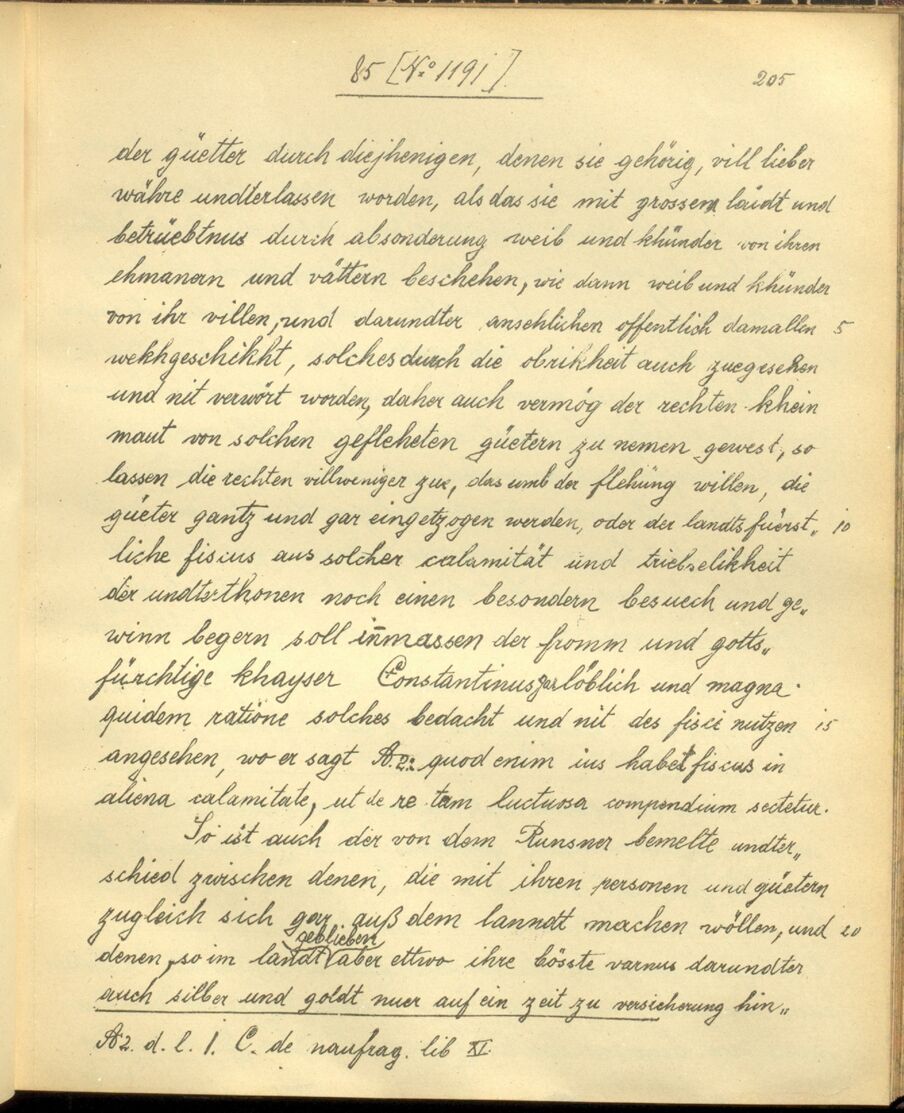 85 [No 1191]
205
der güetter durch diejhenigen, denen sie gehörig, vill lieber
währe undterlassen worden, als das sie mit grossem laidt und
betrüebtnus durch absonderung weib und khünder von ihren
ehmanern und vättern beschehen, wie dann weib und khünder
von ihr villen, und darundter ansehlichen öffentlich damallen 5
wekhgeschikht, solches durch die obrikheit auch zuegesehen
und nit verwört worden, daher auch vermög der rechten khein
maut von solchen gefleheten güetern zu nemen gewest, so
lassen die rechten villweniger zue, das umb der flehüng willen, die
güeter gantz und gar eingetzogen werden, oder der landtsfüerst„ 10
liche fiscus aus solcher calamität und triebselikheit
der undterthonen noch einen besondern besuech und ge„
winn begern soll inmassen der fromm und gotts„
fürchtige khayser Constantinus gar löblich und magna
quidem ratione solches bedacht und nit des fisci nutzen 15
angesehen, wo er sagt A.2: quod enim ius habet fiscus in
aliena calamitate, ut de re tam luctuosa compendium sectetur.
So ist auch der von dem Runsner bemelte undter„
schied zwischen denen, die mit ihren personen und güetern
zugleich sich gar auß dem lanndtt machen wöllen, und 20
geblieben
denen, so im landt aber ettwo ihre bösste varnus darundter
auch silber und goldt nuer auf ein zeit zu versicherung hin„
A2. d. l. 1. C. de naufrag. lib XI.